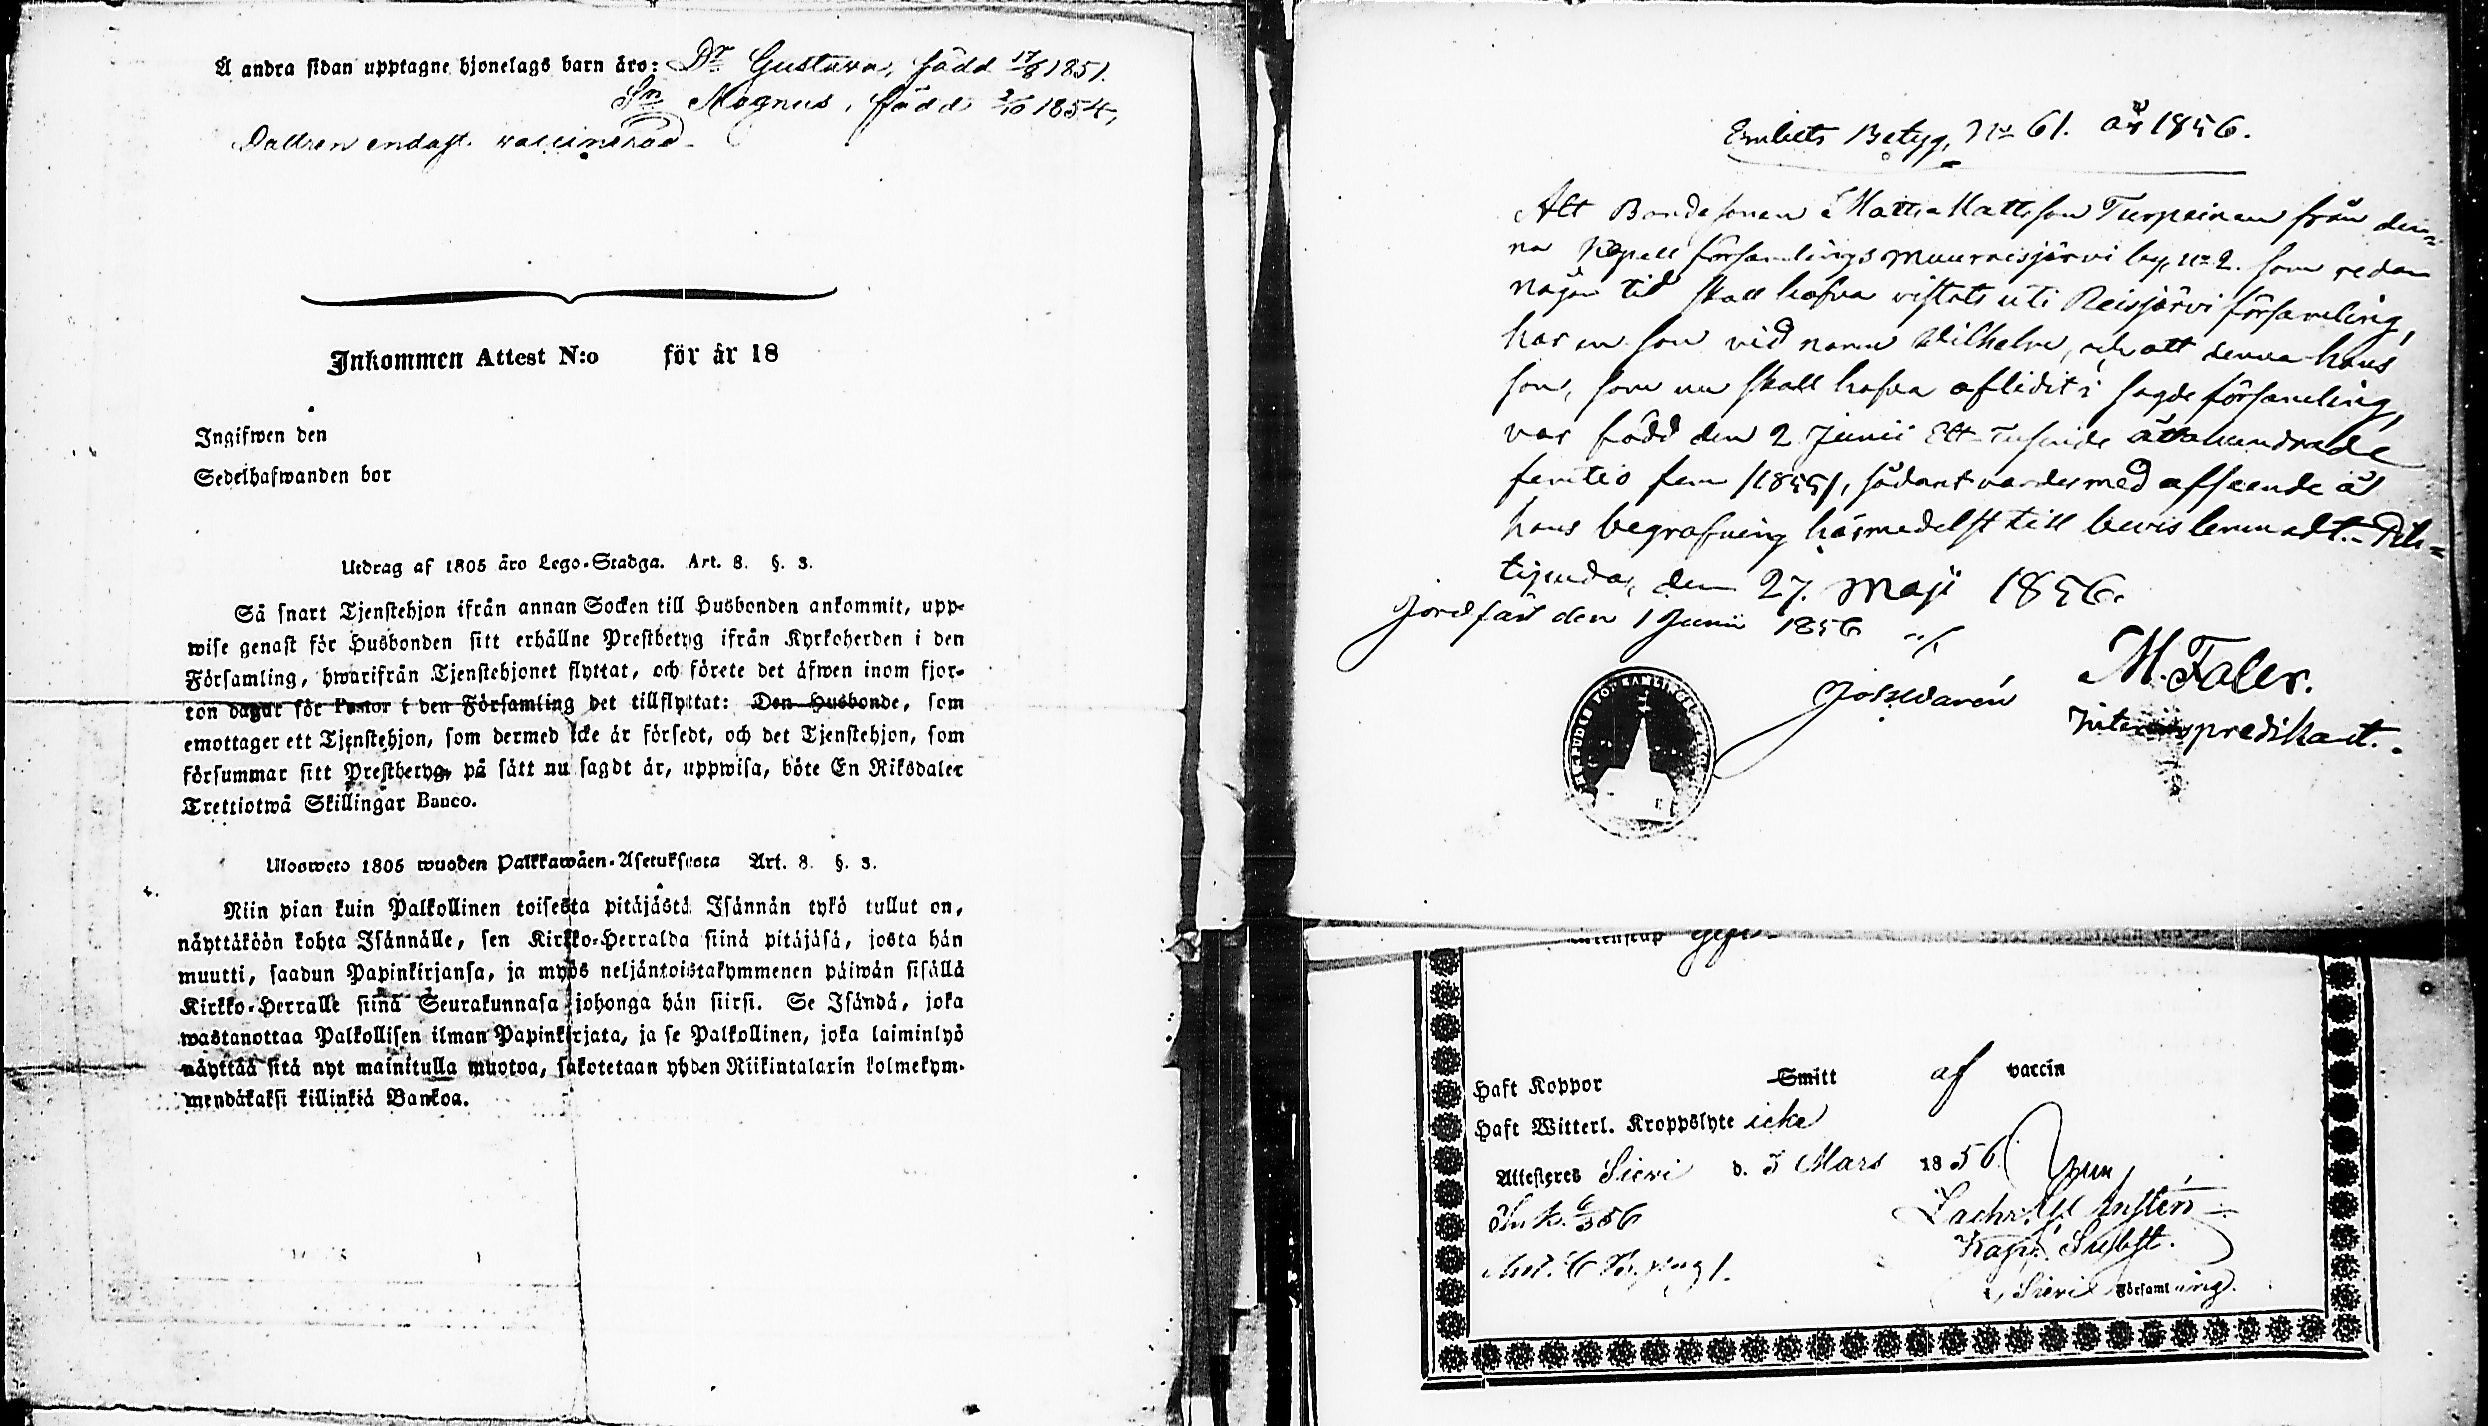 Å andra sidan upptagne hjonelags barn äro: Dr Gustava, född 17/8 1851.
Sn Magnus, född 2/10 1854,
Dottren endast vaccinerad.
Inkommen Attest N:o för år 18
Ingifwen den
Sedelhafwanden bor
Utdrag af 1805 års Lego-Stadga. Art. 8. §. 3.
Så snart Tjenstehjon ifrån annan Socken till Husbonden ankommit, upp-
wise genast för Husbonden sitt erhållne Prestbetyg ifrån Kyrkoherden i den
Församling, hwarifrån Tjenstehjonet flyttat, och förete det äfwen inom fjor-
ton dagar för Pastor i den Församling det tillflyttat: Den Husbonde, som
emottager ett Tjenstehjon, som dermed icke är försedt, och det Tjenstehjon, som
försummar sitt Prestbetyg, på sätt nu sagdt är, uppwisa, böte En Riksdaler
Trettiotwå Skillingar Banco.
Ulosweto 1805 wuoden Palkkawäen-Asetuksesta Art. 8. §. 3.
Niin pian kuin Palkollinen toisesta pitäjästä Isännän tykö tullut on,
näyttäköön kohta Isännälle, sen Kirkko-Herralda siinä pitäjäsä, josta hän
muutti, saadun Papinkirjansa, ja myös neljäntoistakymmenen päiwän sisällä
Kirkko-Herralle siinä Seurakunnasa johonga hän siirsi. Se Isändä, joka
wastanottaa Palkollisen ilman Papinkirjata, ja se Palkollinen, joka laiminlyö
näyttää sitä nyt mainitulla muotoa, sakotetaan yhden Riikintalarin kolmekym-
mendäkaksi killinkiä Bankoa.
Embets Betyg, No 61. år 1856.
Att Bondesonen Matts Mattsson Turpeinen från den-
na Kapell församlings Muurasjärvi by, No 2. som redan
någon tid skall hafva vistats uti Reisjärvi församling,
har en son vid namn Wilhelm, och att denna hans
son, som nu skall hafva aflidit i sagde församling,
var född den 2 Junii Ett tusende åttahundrade
femtio fem /1855/, sådant varder med afseende å
hans begrafning härmedelst till bevis lemnadt. Pih-
tipudas, den 27. Maji 1856.
Jordfäst den 1 Junii 1856
M. Faler.
predikant.
Haft Koppor Smitt af vaccin
Haft Witterl. Kroppslyte icke
Attesteres Sievi d. 3 Mars 1856
Ink. 6/3 56
Kap. Subst.
i Sievi Församling.